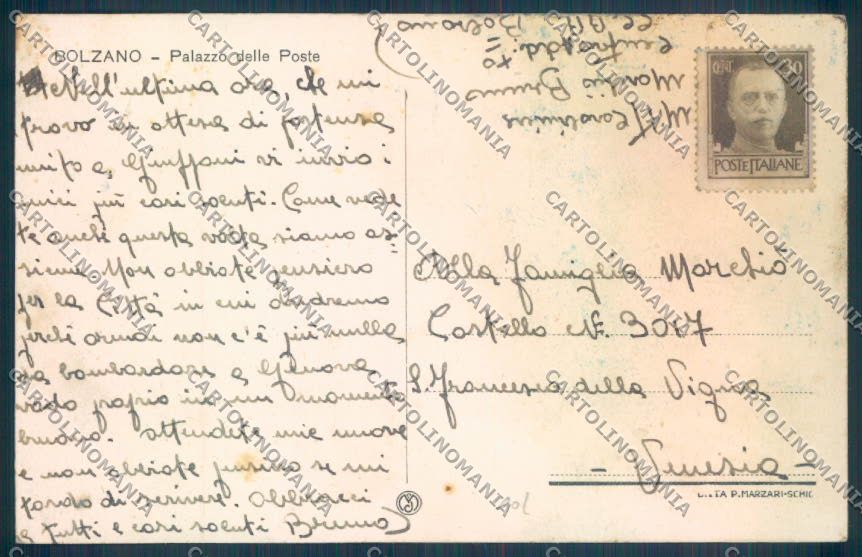 BOLZANO - Palazzo delle Poste
Nell'ultima ora, che mi
trovo in attesa di partenza
unito a Giuffani vi invio i
miei più cari saluti. Come vede
te anche questa volta siamo as-
sieme. Non abbiate pensiero
per la Città in cui andremo
perchè ormai non c'è più nulla
da bombardare a Genova,
vado proprio in un momento
buono. Attendete mie nuove
e non abbiate pensiero se mi
tardo di scrivere. Abbracci
a tutti e cari saluti Bruno
Mitt
Marchiò Bruno
Bolzano
CENT 30
POSTE ITALIANE
Alla Famiglia Marchiò
Castello N. 3087
S. Francesco della Vigna
- Venezia -
DITTA P. MARZARI-SCHIO
CARTOLINOMANIA